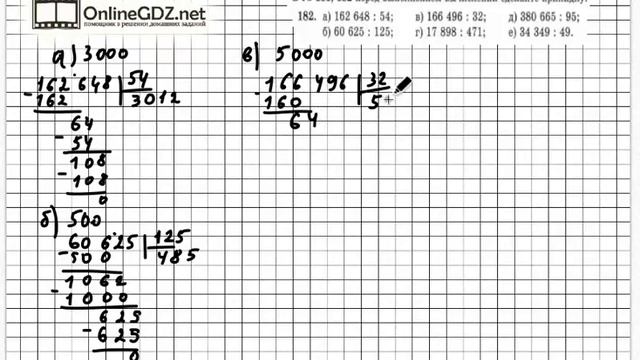 OnlineGDZ.net
182. а) 162 648 : 54; в) 166 496 : 32; д) 380 665 : 95;
б) 60 625 : 125; г) 17 898 : 471; е) 34 349 : 49.
а) 3000
162 648 54
- 162 3012
64
- 54
108
- 108
0
б) 500
60 625 125
- 500 485
1062
- 1000
625
- 625
0
в) 5000
166 496 32
- 160 5
64